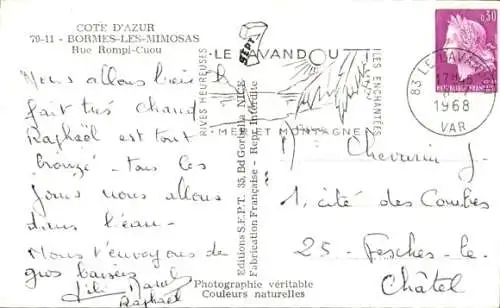 COTE D'AZUR
79-11 - BORMES-LES-MIMOSAS
Rue Rompi-Cuou
Nous allons bien il
fait très chaud
Raphaël est tout
bronzé - tous les
jours nous allons
dans l'eau -
Nous t'envoyons de
gros baisers
Lili
Raphaël
Editions S.E.P.T. 35, Bd Gorbella - NICE
Fabrication Française - Repr. Interdite
SEPT
Photographie véritable
Couleurs naturelles
RIVES HEUREUSES
LE LAVANDOU
MER ET MONTAGNE
ILES ENCHANTÉES
83 LE LAVANDOU
1968
VAR
0,30
REPUBLIQUE FRANÇAISE
Chevirin J-
1, cité des Combes
25 - Fesches-le-
Châtel